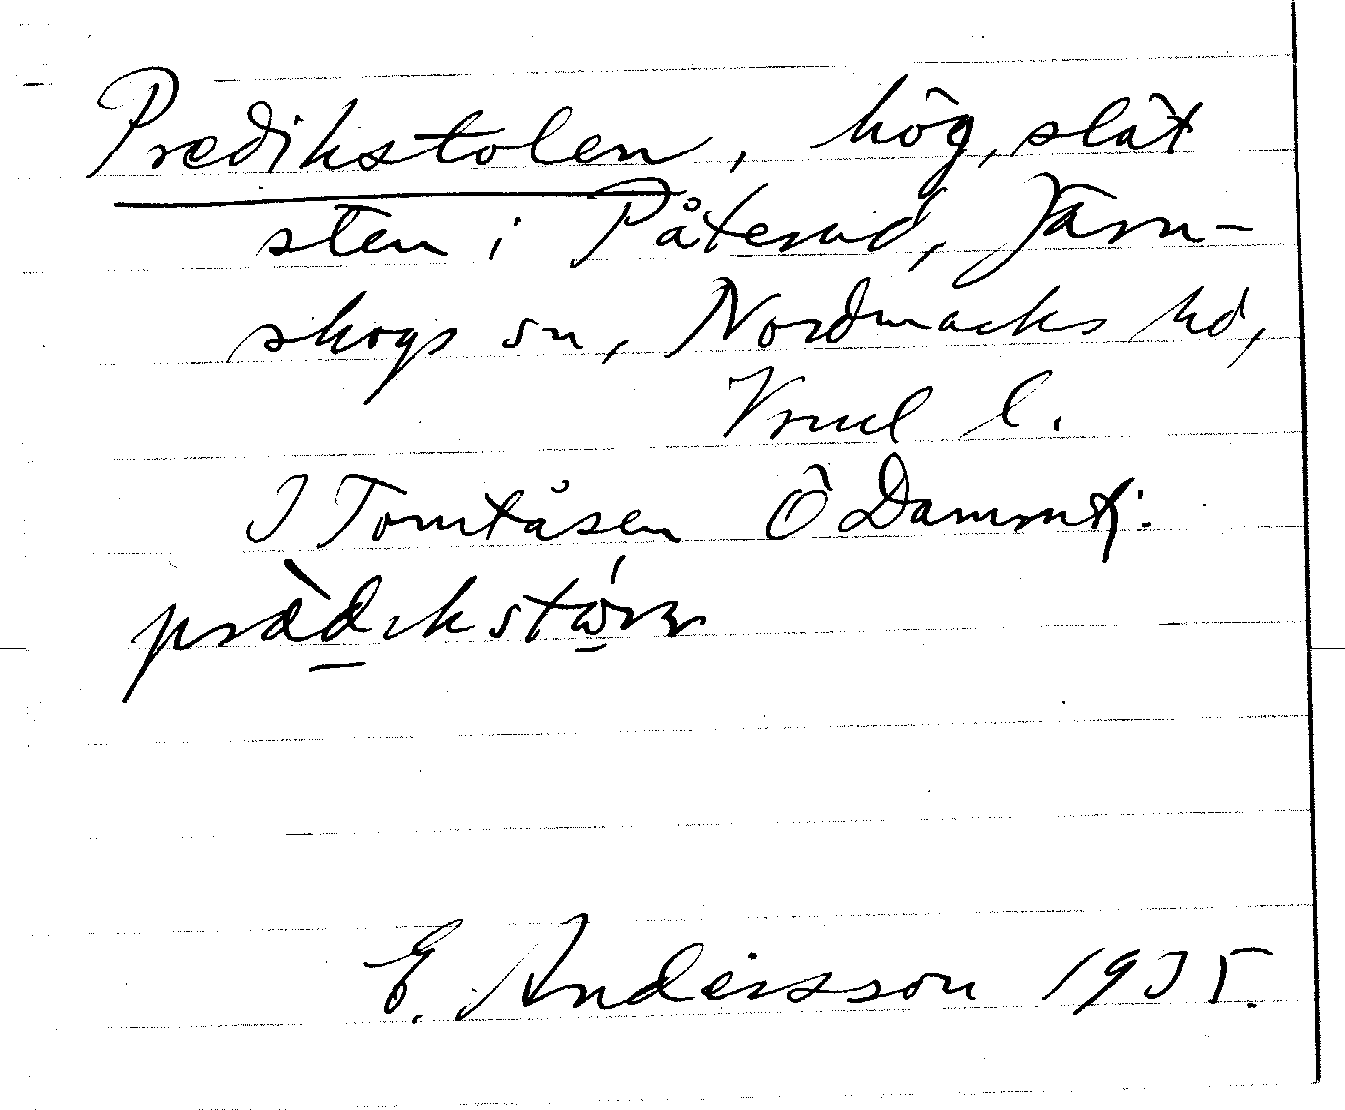 Predikstolen, hög, slät
sten i Påterud, Järn-
skogs sn, Nordmarks hd,
Vrml l.
I Tomtåsen Ö Dammtj.
E. Andersson 1935.